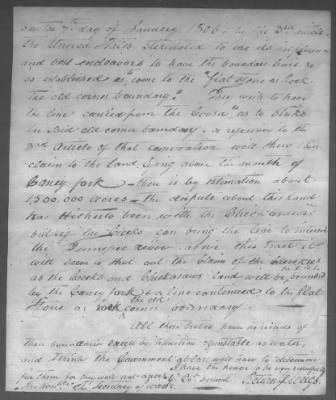 on the 7th day of January 1806. by the 3rd article
the United States stipulated to use its
and best endeavors to have the boundary line so
so established as "come to the "flat stone or rock
the old corner boundary." They wish to have
the line carried from the Coosa, as to strike
the said old corner boundary. a reference to the
3rd article of that convention will shew
claim to the land lying above the mouth of
Caney fork - there is by estimation about
1,500,000 acres - the dispute about this land
has hitherto been with the
but if the Creeks can bring the line to
the Tennessee river above this tract it
will seem to shut out the claim of the Cherokees
as the Creeks and Chickasaws land will be bounded
by the Caney fork & a line continued to the flat
Stone or rock the old corner boundary.
All these tribes have no ideas of
their boundary except by tradition as water,
and I think the Government alone will have to determine
for them for they will not agree
I have the honor to be very respectfully
Sir Your Obt Servant Return J. Meigs
The Honble The Secretary of War